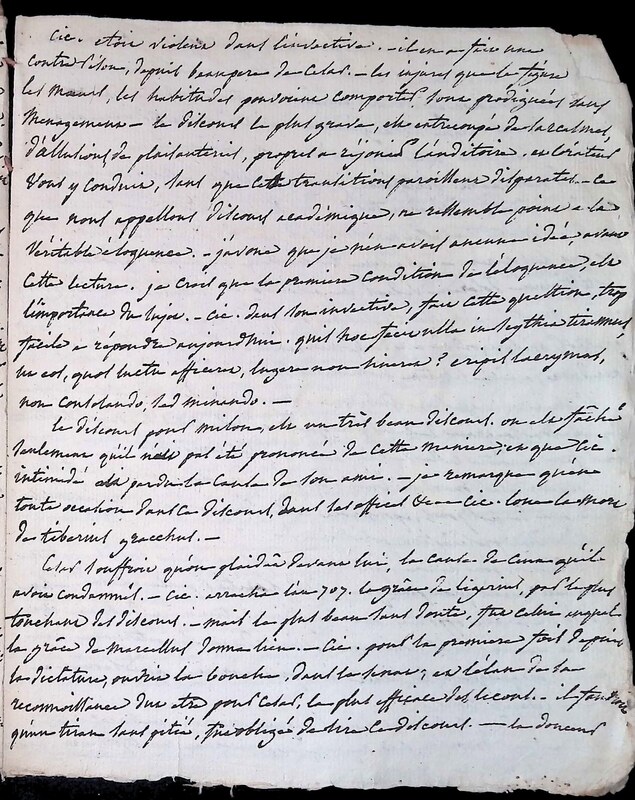 Cic. etoit violent dans l'invective. – il en a fait une
contre Pison, depuis beaupere de Cesar. – les injures que le
les moeurs, les habitudes pouvoient comporter, sont prodiguées sans
menagement – le discours le plus grave, est entrecoupé de sarcasmes,
d'allusions, de plaisanteries, propres a réjouir l'auditoire. et l'orateur
vous y conduit, sans que cette transitions paroissent disparates. – Ce
que nous appellons discours académique, ne ressemble point a la
véritable éloquence. – j'avoue que je n'en avois aucune idée, avant
cette lecture. je crois que la premiere condition de l'éloquence, est
l'importance du sujet. – Cic. dans son invective, fait cette question, trop
facile a répondre aujourd'hui. quis hoc fecit ulla in scythia tirannus,
ut eos, quos luctu afficeret, lugere non sineret? eripis lacrymas,
non consolando, sed minando. –
le discours pour milon, est un très beau discours. on est fâché
seulement qu'il n'ait pas été prononcé de cette maniere, et que Cic.
intimidé ait perdu la cause de son ami. – je remarque qu'en
toute occasion dans ce discours, dans ses offices &c – Cic. loue la mort
de tiberius gracchus. –
Cesar souffroit qu'on plaidât devant lui, la cause de ceux qu'il
avoit condamnés. – Cic. arracha l'an 707. la grâce de ligarius, par le plus
touchant des discours. – mais le plus beau sans doute, fut celui auquel
la grâce de marcellus donna lieu. – Cic. pour la premiere fois depuis
la dictature, ouvrit la bouche, dans le senat; et l'élan de sa
reconnoissance dut etre pour Cesar, la plus efficace des lecons. – il faut
qu'un tiran sans pitié, fut obligé de lire ce discours. – la douceur